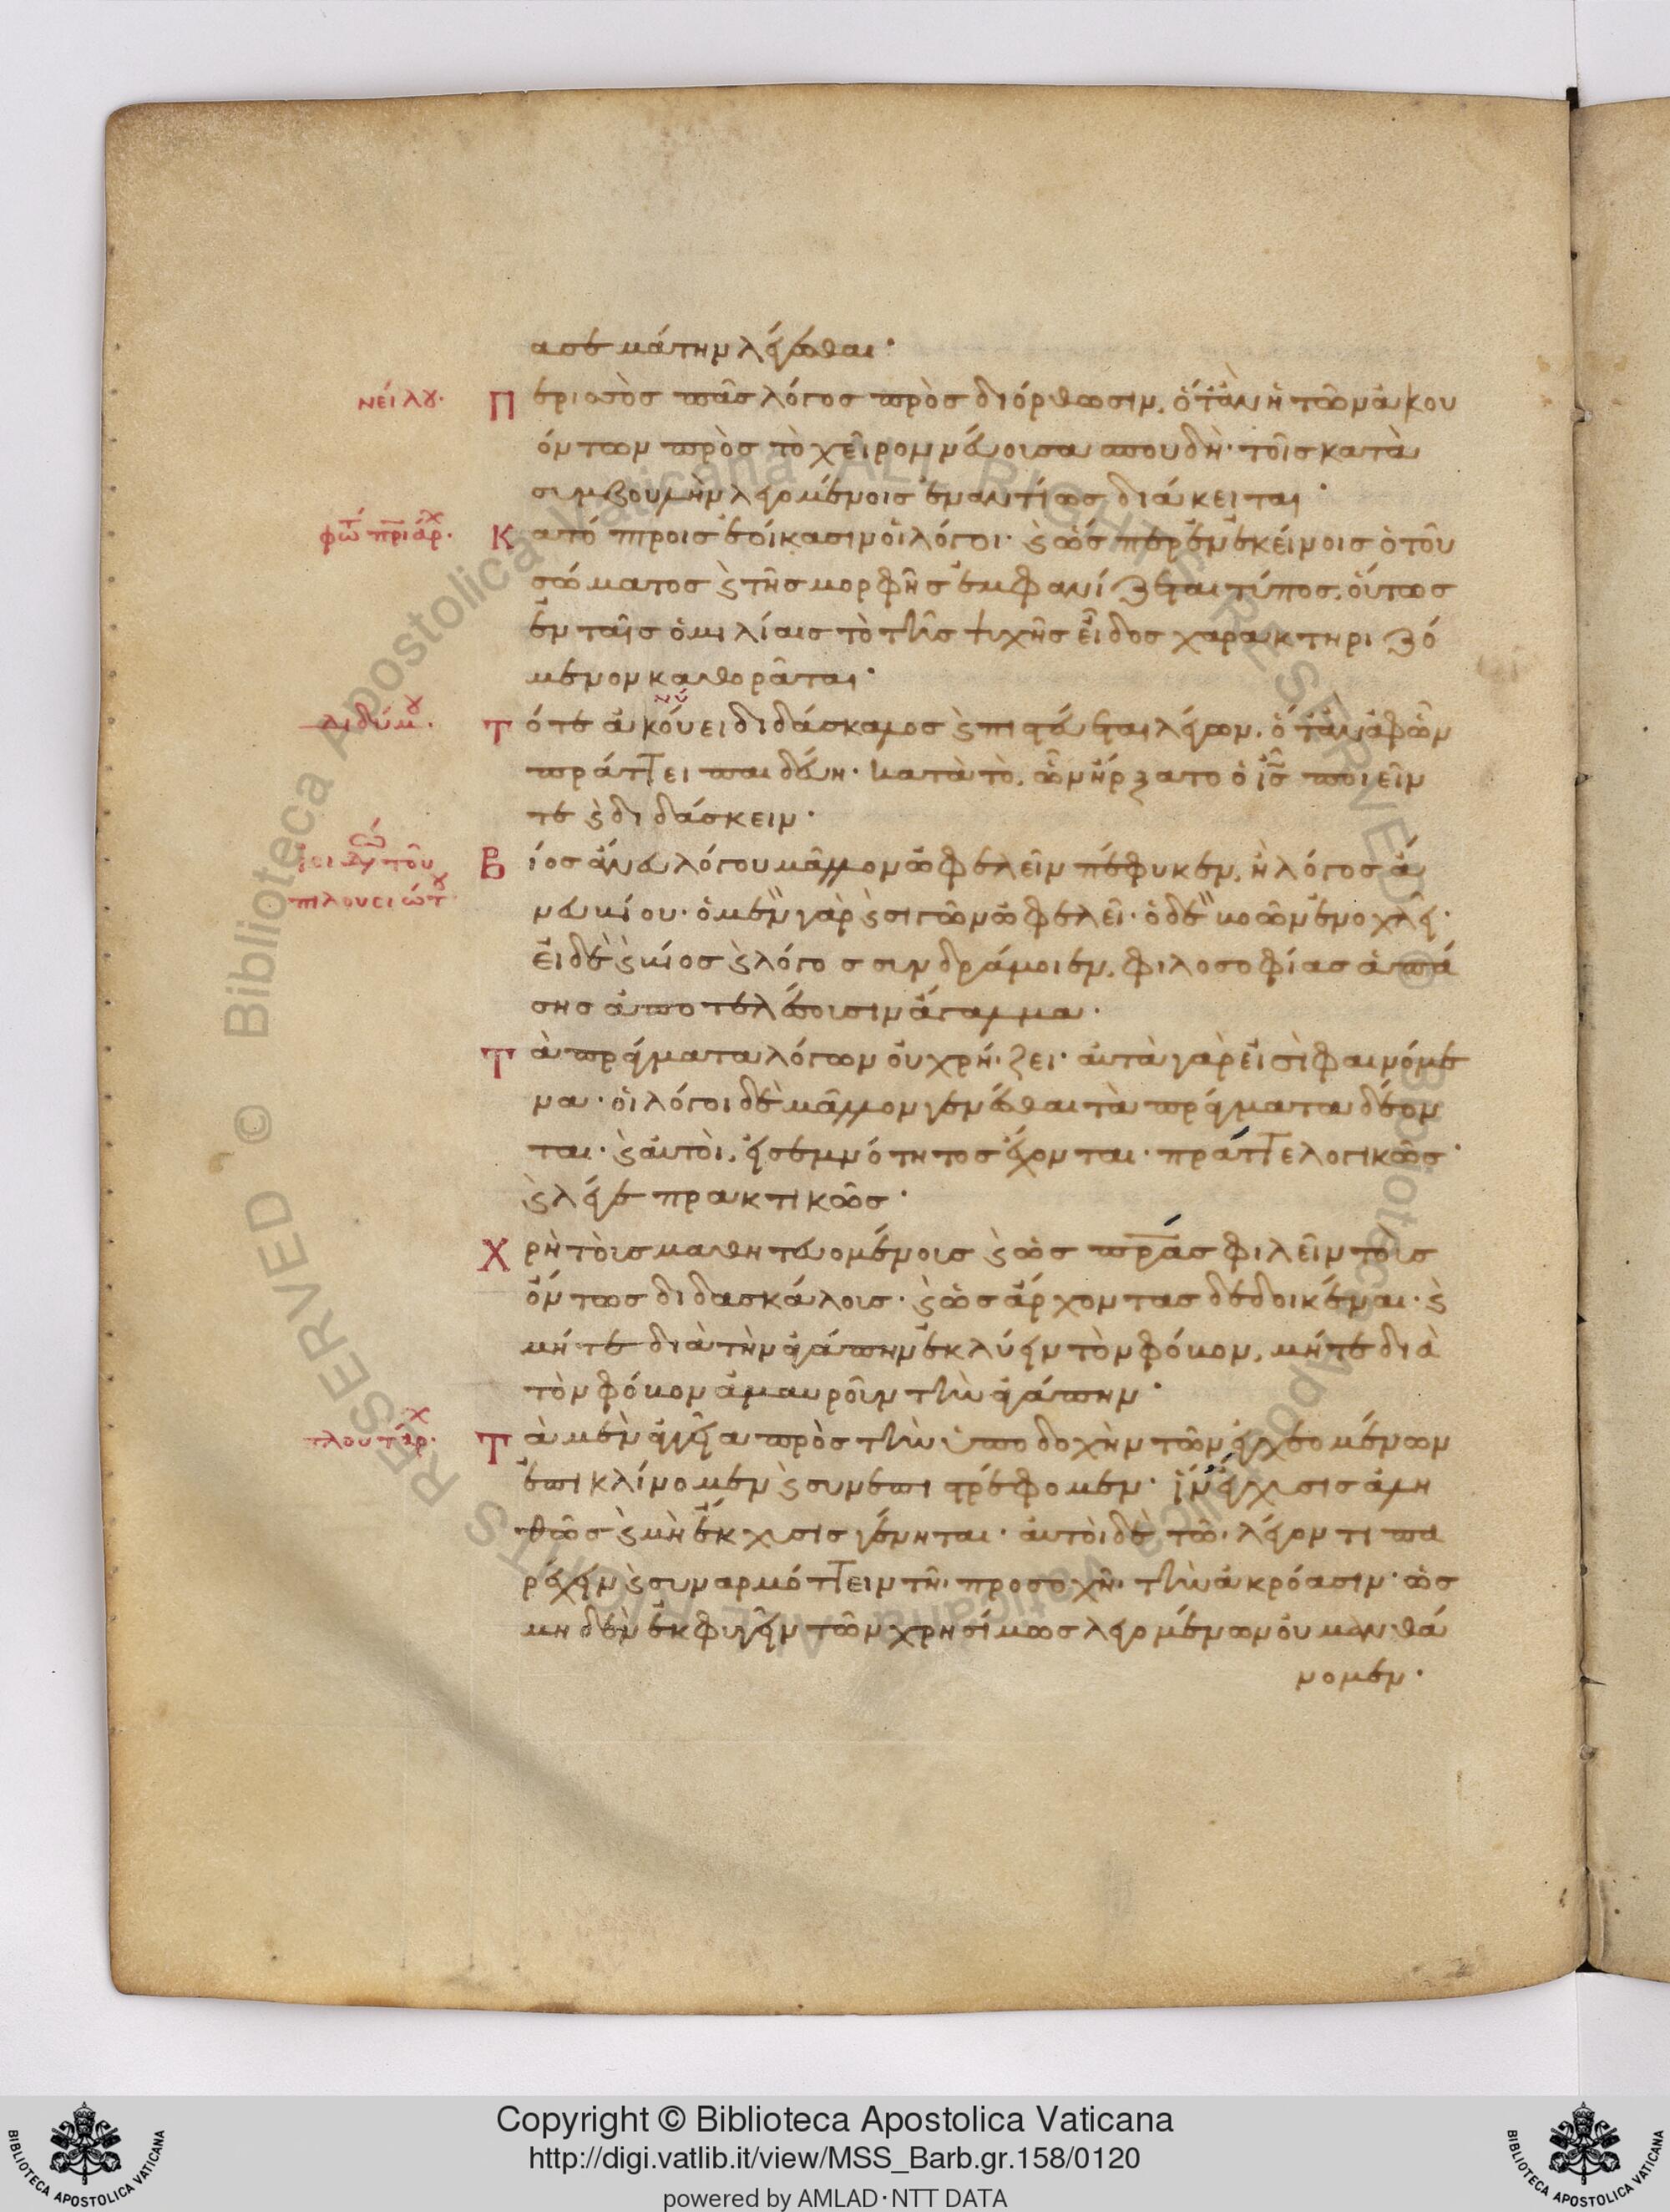 ασε μάτην λέγεσθαι·
νείλου· Περισσὸς πᾶς λόγος πρὸς διόρθωσιν, ὅταν ἡ τῶν ἀκου
όντων πρὸς τὸ χεῖρον νεύουσα σπουδὴ· τοῖς κατὰ
συμβουλὴν λεγομένοις ἐναντίως διάκειται·
φωτ πριάρχ· Κατόπτροις ἐοίκασιν οἱ λόγοι· καὶ ὥσπερ ἐν ἐκείνοις ὁ τοῦ
σώματος καὶ τῆς μορφῆς ἐμφανίζεται τύπος, οὕτως
ἐν ταῖς ὁμιλίαις τὸ τῆς ψυχῆς εἶδος χαρακτηριζό
μενον καθορᾶται·
διδύμου· Τότε ἀκούει διδάσκαλος καὶ πιστεύεται λέγων, ὅταν ἀφ' ὧν
πράττει παιδεύη· κατὰ τὸ, ὧν ἤρξατο ὁ ἰς ποιεῖν
τε καὶ διδάσκειν·
ἰσιδώ τοῦ
πιλουσιώτου Βίος ἄνευ λόγου μᾶλλον ὠφελεῖν πέφυκεν, ἢ λόγος ἄ
νευ βίου· ὁ μὲν γὰρ καὶ σιγῶν ὠφελεῖ· ὁ δὲ βοῶν ἐνοχλεῖ·
εἰ δὲ καὶ βίος καὶ λόγος συνδράμοιεν, φιλοσοφίας ἁπά
σης ἀποτελέσουσιν ἄγαλμα·
Τὰ πράγματα λόγων οὐ χρήζει· αὐτὰ γὰρ εἰσὶ φαινόμε
να· οἱ λόγοι δὲ μᾶλλον γενέσθαι τὰ πράγματα δέον
ται· καὶ αὐτοὶ, ἐσεμνότητος ἔχονται· πράττε λογικῶς·
καὶ λέγε πρακτικῶς·
Χρὴ τοὺς μαθητευομένους καὶ ὡς πρας φιλεῖν τοὺς
ὄντως διδασκάλους· καὶ ὡς ἄρχοντας δεδοικέναι· καὶ
μήτε διὰ τὴν ἀγάπην ἐκλύειν τὸν φόβον, μήτε διὰ
τὸν φόβον ἀμαυροῦν τὴν ἀγάπην·
πλουτάρχ· Τὰ μὲν ἀγγεῖα πρὸς τὴν ὑποδοχὴν τῶν ἐγχεομένων
ἐπικλίνομεν καὶ συνεπιστρέφομεν· ἵν' ἔγχυσις ἀλη
θῶς καὶ μὴ ἔκχυσις γένηται· αὐτοὶ δὲ τῶ λέγοντι πα
ρέχειν καὶ συναρμόττειν τῆ προσοχῆ τὴν ἀκρόασιν· ὡς
μηδὲν ἐκφυγεῖν τῶν χρησίμως λεγομένων οὐ μανθά
νομεν·
Copyright © Biblioteca Apostolica Vaticana
http://digi.vatlib.it/view/MSS_Barb.gr.158/0120
powered by AMLAD·NTT DATA